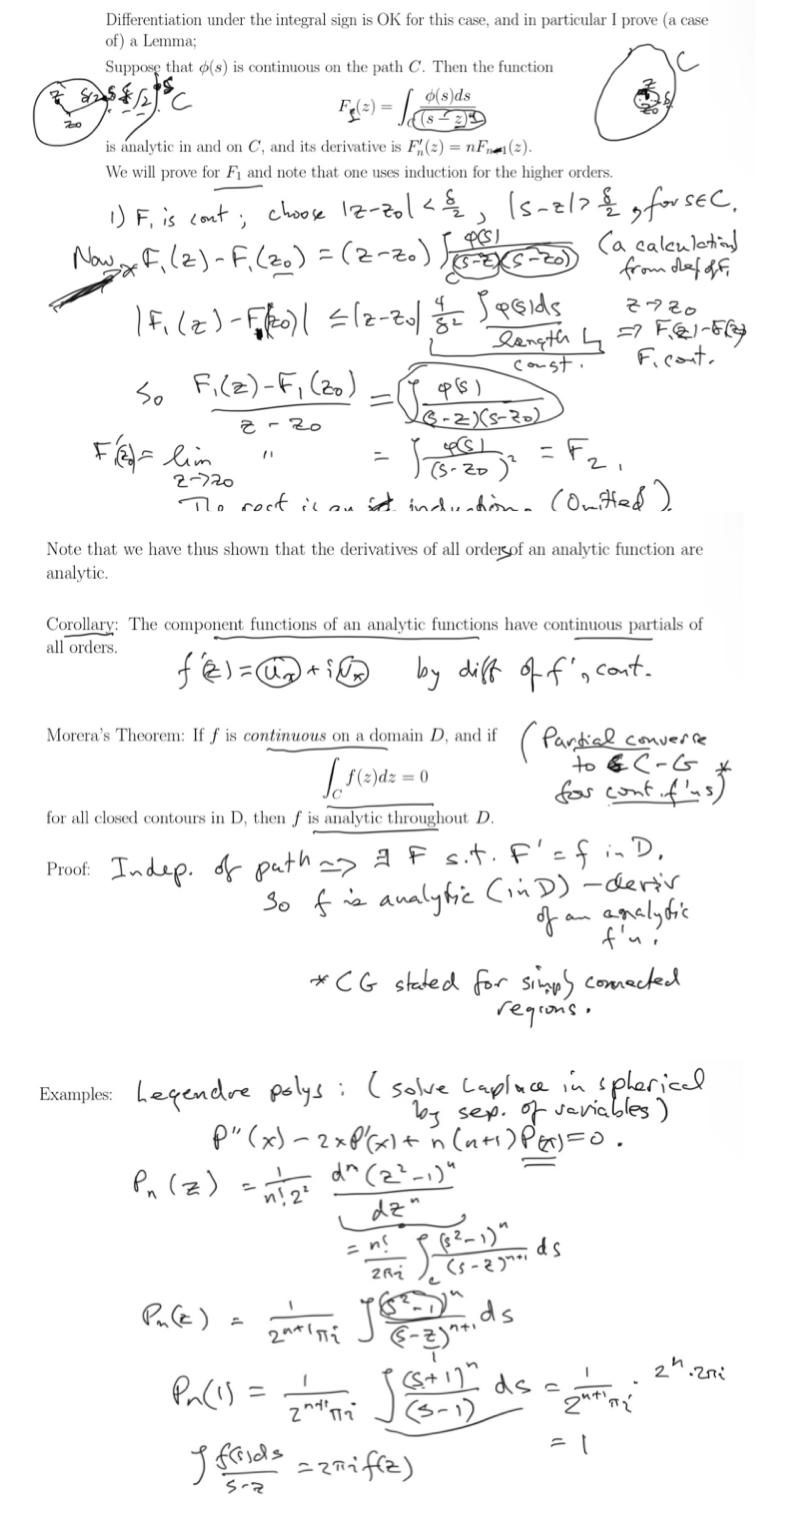 Differentiation under the integral sign is OK for this case, and in particular I prove (a case
of) a Lemma;
Suppose that ϕ(s) is continuous on the path C. Then the function
z δ/2 δ/2 δ C
z₀
F₁(z) = ∫_C ϕ(s)ds / (s − z)
C
z
z₀ δ
is analytic in and on C, and its derivative is F′ₙ(z) = nFₙ₊₁(z).
We will prove for F₁ and note that one uses induction for the higher orders.
1) F₁ is cont; choose |z-z₀| < δ/2, |s-z| > δ/2, for s∈C.
Now F₁(z) - F₁(z₀) = (z-z₀) ∫_C φ(s) / (s-z)(s-z₀) (a calculation
from def of F₁
|F₁(z) - F₁(z₀)| ≤ |z-z₀| 4/δ² ∫ φ(s)ds z→z₀
length L ⇒ F₁(z)-F₁(z)
const. F₁ cont.
So F₁(z)-F₁(z₀) / z-z₀ = ∫ φ(s) / (s-z)(s-z₀)
F₁'(z₀) = lim z→z₀ " = ∫ φ(s) / (s-z₀)² = F₂,
The rest is an induction. (Omitted).
Note that we have thus shown that the derivatives of all orders of an analytic function are
analytic.
Corollary: The component functions of an analytic functions have continuous partials of
all orders.
f'(z) = u_x + i v_x by diff of f', cont.
Morera's Theorem: If f is continuous on a domain D, and if (Partial converse
to C-G *
∫_C f(z)dz = 0 for cont. f'ns)
for all closed contours in D, then f is analytic throughout D.
Proof: Indep. of path => ∃ F s.t. F' = f in D.
So f is analytic (in D) - deriv
of an analytic
f'n.
* CG stated for simply connected
regions.
Examples: Legendre polys: (solve Laplace in spherical
by sep. of variables)
P''(x) - 2xP'(x) + n(n+1)P(x) = 0.
Pₙ(z) = 1/n!2² dⁿ(z²-1)ⁿ / dzⁿ
= n!/2πi ∫_C (s²-1)ⁿ / (s-z)ⁿ⁺¹ ds
Pₙ(z) = 1/2ⁿ⁺¹πi ∫ (s²-1)ⁿ / (s-z)ⁿ⁺¹ ds
1
Pₙ(1) = 1/2ⁿ⁺¹πi ∫ (s+1)ⁿ / (s-1) ds = 1/2ⁿ⁺¹πi · 2ⁿ·2πi
= 1
∫ f(s)ds / s-z = 2πi f(z)